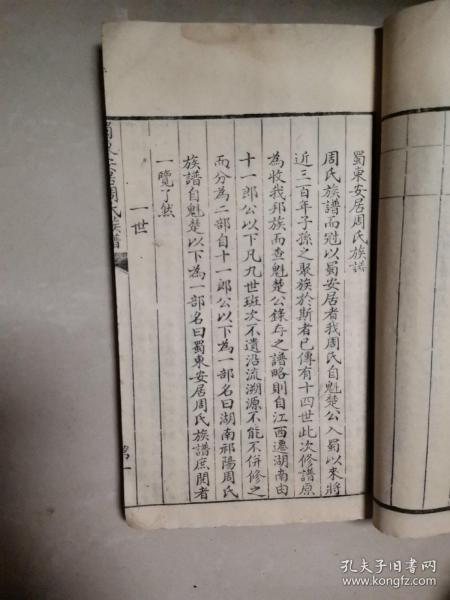 蜀東安居周氏族譜
周氏族譜而冠以蜀安居者我周氏自魁楚公入蜀以來將
近三百年子孫之聚族於斯者已傳有十四世此次修譜原
為收我邦族而查魁楚公錄存之譜略則自江西遷湖南由
十一郎公以下凡九世班次不遺沿流溯源不能不併修之
而分為二部自十一郎公以下為一部名曰湖南祁陽周氏
族譜自魁楚以下為一部名曰蜀東安居周氏族譜庶閱者
一覽了然
一世
周氏族譜
孔夫子旧书网
www.kongfz.com